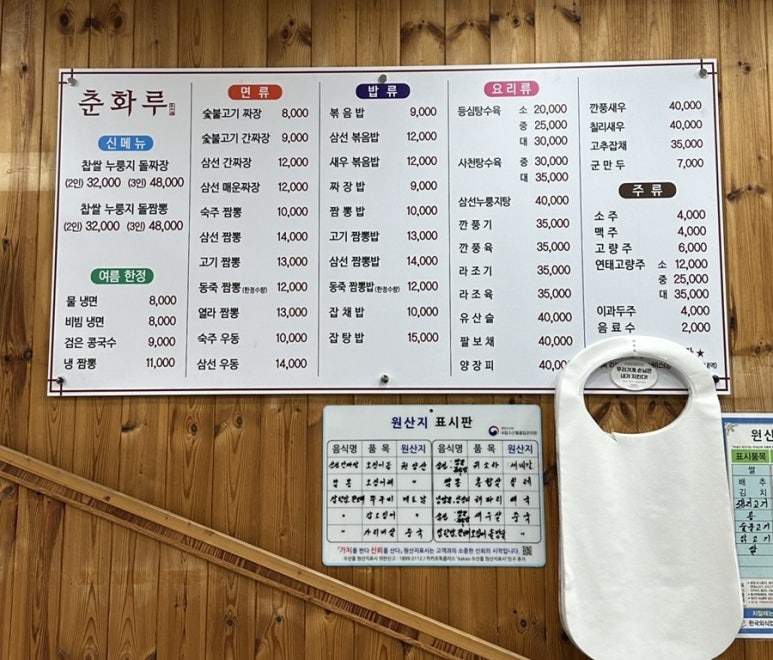 춘화루
신메뉴
찹쌀 누룽지 돌짜장
(2인) 32,000 (3인) 48,000
찹쌀 누룽지 돌짬뽕
(2인) 32,000 (3인) 48,000
여름 한정
물 냉면 8,000
비빔 냉면 8,000
검은 콩국수 9,000
냉 짬뽕 11,000
면 류
숯불고기 짜장 8,000
숯불고기 간짜장 9,000
삼선 간짜장 12,000
삼선 매운짜장 12,000
숙주 짬뽕 10,000
삼선 짬뽕 14,000
고기 짬뽕 13,000
동죽 짬뽕 (한정수량) 12,000
열라 짬뽕 13,000
숙주 우동 10,000
삼선 우동 14,000
밥 류
볶 음 밥 9,000
삼선 볶음밥 12,000
새우 볶음밥 12,000
짜 장 밥 9,000
짬 뽕 밥 10,000
고기 짬뽕밥 13,000
삼선 짬뽕밥 14,000
동죽 짬뽕밥 (한정수량) 12,000
잡 채 밥 10,000
잡 탕 밥 15,000
요 리 류
등심탕수육 소 20,000
중 25,000
대 30,000
사천탕수육 중 30,000
대 35,000
삼선누룽지탕 40,000
깐 풍 기 35,000
깐 풍 육 35,000
라 조 기 35,000
라 조 육 35,000
유 산 슬 40,000
팔 보 채 40,000
양 장 피 40,000
깐풍새우 40,000
칠리새우 40,000
고추잡채 35,000
군 만 두 7,000
주 류
소 주 4,000
맥 주 4,000
고 량 주 6,000
연태고량주 소 12,000
중 25,000
대 35,000
이과두주 4,000
음 료 수 2,000
원산지 표시판
국립수산물품질관리원
음식명 품 목 원산지 음식명 품 목 원산지
"가치를 판다 신뢰를 산다„ 원산지표시는 고객과의 소중한 신뢰의 시작입니다.
우리가게 손님은
내가 지킨다!
원산
표시품목
쌀
배 추
김 치
콩
쌀